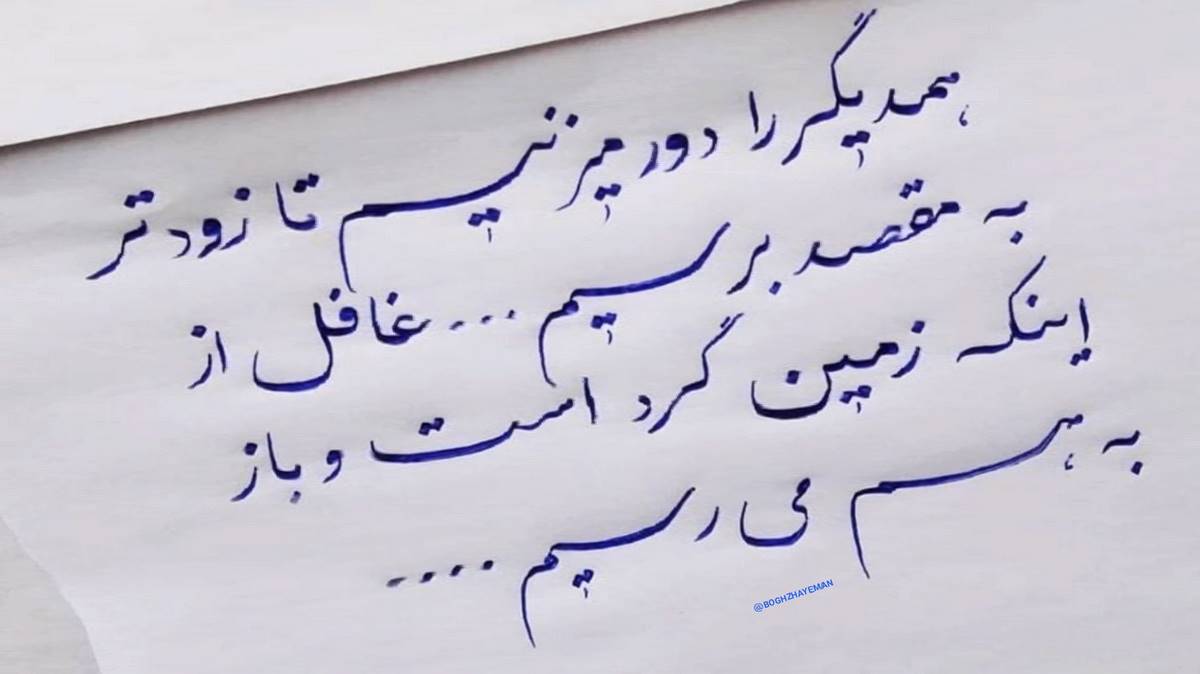 همدیگر را دور میزنیم تا زودتر
به مقصد برسیم ... غافل از
اینکه زمین گرد است و باز
به هم می رسیم ....
@BOGHZHAYEMAN